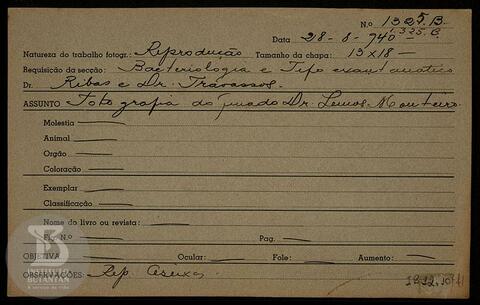 N.o 1325.B.
1325.B.
Data 28-8-940
Natureza do trabalho fotogr.: Reprodução Tamanho da chapa: 13x18 —
Requisição da secção: Bacteriologia e Tifo exantematico
Dr. Ribas e Dr. Travassos.
ASSUNTO Fotografia do finado Dr. Lemos-Monteiro.
Molestia
Animal
Orgão
Coloração
Exemplar
Classificação
Nome do livro ou revista:
Fig. N.o Pag.
OBJETIVA Ocular: Fole: Aumento:
OBSERVAÇÕES: Rep.
BUTANTAN